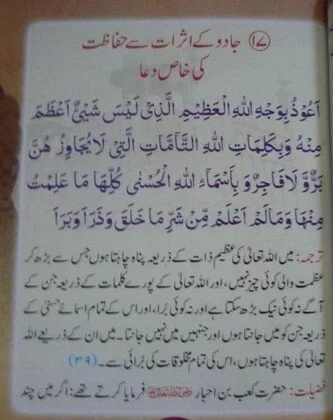 ۱۷ جادو کے اثرات سے حفاظت
کی خاص دعا
اَعُوْذُ بِوَجْهِ اللهِ الْعَظِيْمِ الَّذِىْ لَيْسَ شَيْئٌ اَعْظَمَ
مِنْهُ وَبِكَلِمَاتِ اللهِ التَّآمَّاتِ الَّتِىْ لَا يُجَاوِزُ هُنَّ
بَرٌّ وَّلَا فَاجِرٌ وَّ بِاَسْمَآءِ اللهِ الْحُسْنٰى كُلِّهَا مَا عَلِمْتُ
مِنْهَا وَمَا لَمْ اَعْلَمْ مِّنْ شَرِّ مَا خَلَقَ وَذَرَاَ وَبَرَاَ
ترجمہ: میں اللہ تعالیٰ کی عظیم ذات کے ذریعہ پناہ چاہتا ہوں جس سے بڑھ کر
عظمت والی کوئی چیز نہیں، اور اللہ تعالیٰ کے پورے کلمات کے ذریعہ جن کے
آگے نہ کوئی نیک بڑھ سکتا ہے اور نہ کوئی بُرا، اور اس کے تمام اسمائے حسنیٰ کے
ذریعہ جن کو میں جانتا ہوں اور جنہیں میں نہیں جانتا۔ میں ان کے ذریعے اللہ
کی پناہ چاہتا ہوں، اس کی تمام مخلوقات کی بُرائی سے۔ (۳۹)
فضیلت: حضرت کعب بن احبار رضی اللہ عنہ فرمایا کرتے تھے: اگر میں چند